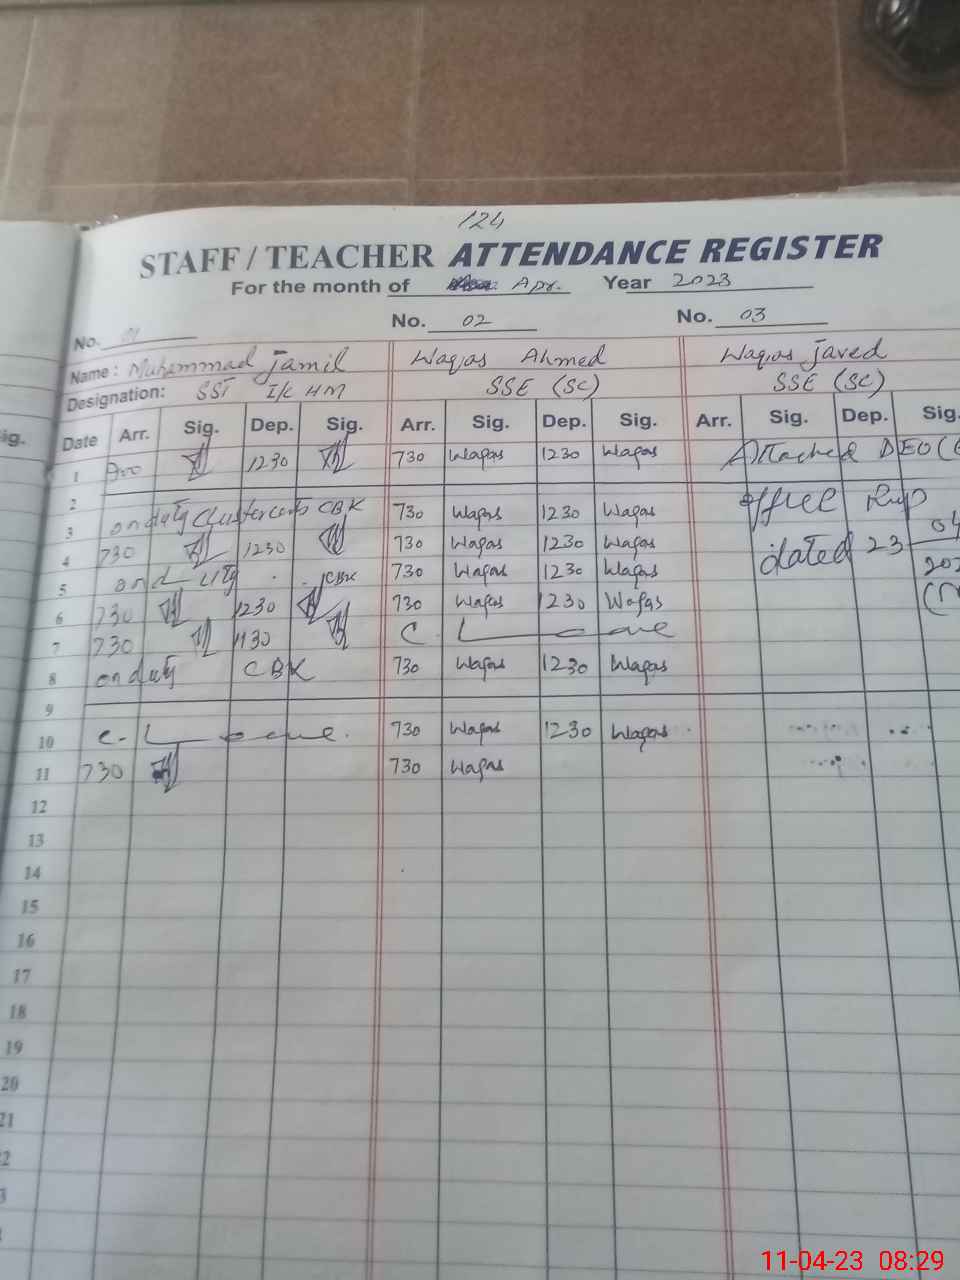 124
STAFF / TEACHER ATTENDANCE REGISTER
For the month of Apr. Year 2023
No. 01 No. 02 No. 03
Name: Muhammad Jamil Waqas Ahmed Waqas Javed
Designation: SST I/C HM SSE (SC) SSE (SC)
ig. Date Arr. Sig. Dep. Sig. Arr. Sig. Dep. Sig. Arr. Sig. Dep. Sig.
1 1230 730 Waqas 1230 Waqas Attached DEO
2
3 on duty CBK 730 Waqas 1230 Waqas office
4 730 1230 730 Waqas 1230 Waqas dated 23
5 on duty CBK 730 Waqas 1230 Waqas
6 730 1230 730 Waqas 1230 Waqas
7 730 1130 C. Leave
8 on duty CBK 730 Waqas 1230 Waqas
9
10 C. Leave. 730 Waqas 1230 Waqas
11 730 730 Waqas
12
13
14
15
16
17
18
19
20
21
11-04-23 08:29